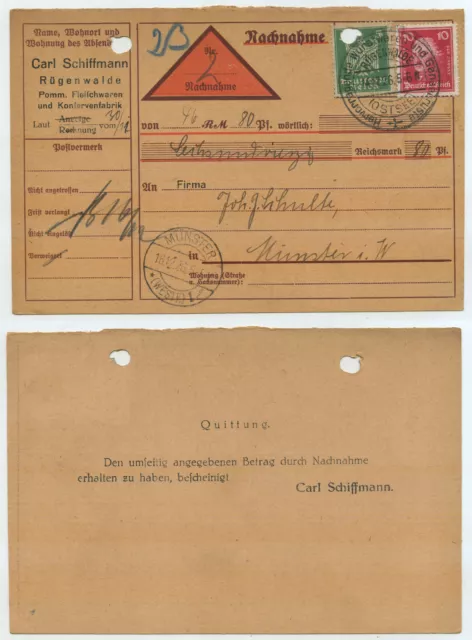 Name, Wohnort und
Wohnung des Absenders
Carl Schiffmann
Rügenwalde
Pomm. Fleischwaren
und Konservenfabrik
Laut Anzeige
Rechnung vom 30/
Postvermerk
Nicht angetroffen
Frist verlangt
Nicht eingelöst
Verweigert
2B
Nachnahme
Nr.
2
Nachnahme
10
Deutsches Reich
10
Deutsches Reich
(OSTSEE)
von 46 RM 80 Pf. wörtlich:
Sechsundvierzig
Reichsmark 80 Pf.
An Firma
Joh. G. Schulte,
in Münster i. W
Wohnung (Straße
u. Hausnummer):
MÜNSTER
(WESTF) 1
Quittung.
Den umseitig angegebenen Betrag durch Nachnahme
erhalten zu haben, bescheinigt
Carl Schiffmann.